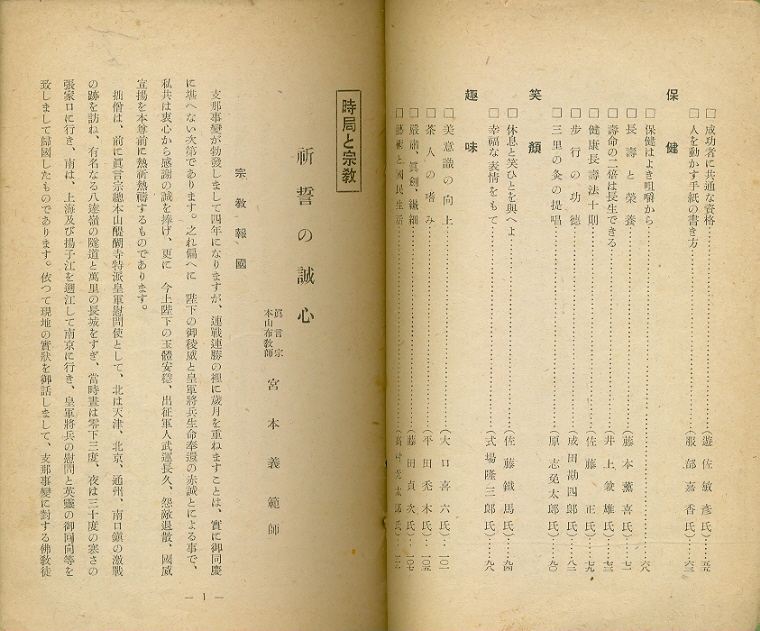 □成功者に共通な資格…………(遊佐敏彦氏)…
□人を動かす手紙の書き方…………(服部嘉香氏)…六三
保健
□保健はよき咀嚼から…………六八
□長壽と榮養…………(藤本薫喜氏)…七一
□壽命の二倍は長生できる…………(井上兼雄氏)…七三
□健康長壽法十則…………(佐藤正氏)…七九
□步行の功德…………(成田勘四郎氏)…八二
□三里の灸の提唱…………(原志免太郎氏)…九〇
笑顏
□休息と笑ひとを與へよ…………(佐藤鐵馬氏)…九四
□幸福な表情をもて…………(式場隆三郎氏)…九八
趣味
□美意識の向上…………(大口喜六氏)…一〇一
□茶人の嗜み…………(平田禿木氏)…一〇五
□嚴肅、眞劍、纎細…………(藤田貞次氏)…一〇七
□藝術と國民生活…………(高村光太郎氏)…
時局と宗教
祈誓の誠心
眞言宗
本山布教師 宮本義範師
宗教報國
支那事變が勃發しまして四年になりますが、連戰連勝の裡に歲月を重ねますことは、實に御同慶
に堪へない次第であります。之れ偏へに 陛下の御稜威と皇軍將兵生命奉還の赤誠とによる事で、
私共は衷心から感謝の誠を捧げ、更に 今上陛下の玉體安穩、出征軍人武運長久、怨敵退散、國威
宣揚を本尊前に熱祈熱禱するものであります。
拙僧は、前に眞言宗總本山醍醐寺特派皇軍慰問使として、北は天津、北京、通州、南口鎭の激戰
の跡を訪ね、有名なる八達嶺の隧道と萬里の長城をすぎ、當時晝は零下三度、夜は三十度の寒さの
張家口に行き、南は、上海及び揚子江を遡江して南京に行き、皇軍將兵の慰問と英靈の御回向等を
致しまして歸國したものであります。依つて現地の實狀を御話しまして、支那事變に對する佛敎徒
— 1 —